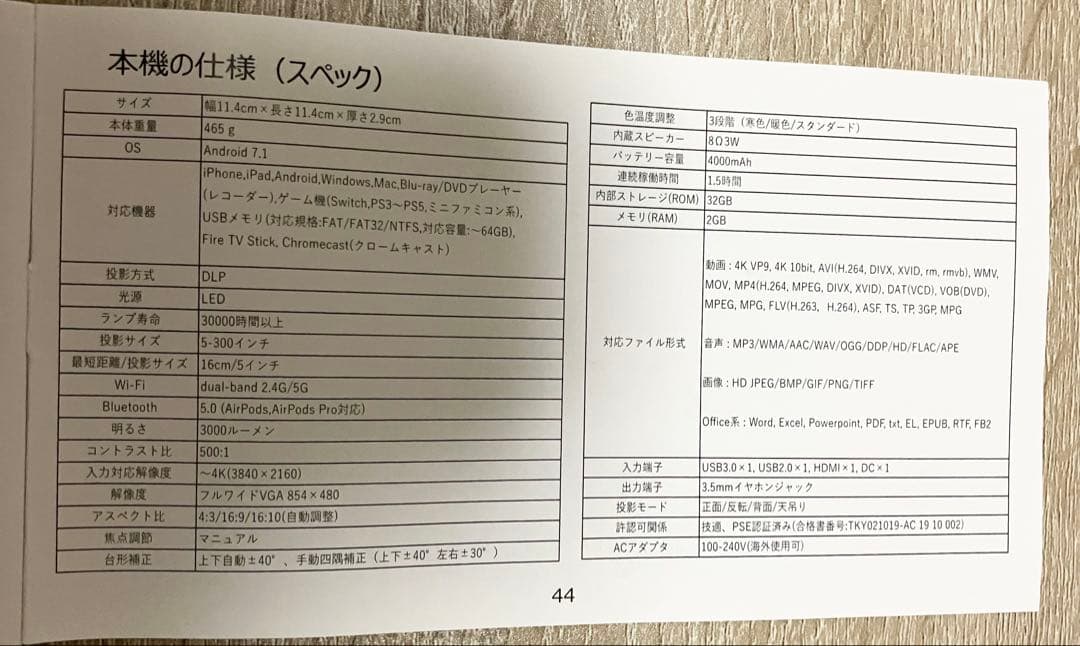 本機の仕様（スペック）
サイズ 幅11.4cm×長さ11.4cm×厚さ2.9cm
本体重量 465 g
OS Android 7.1
対応機器 iPhone,iPad,Android,Windows,Mac,Blu-ray/DVDプレーヤー
(レコーダー),ゲーム機(Switch,PS3～PS5,ミニファミコン系),
USBメモリ(対応規格:FAT/FAT32/NTFS,対応容量:～64GB),
Fire TV Stick, Chromecast(クロームキャスト)
投影方式 DLP
光源 LED
ランプ寿命 30000時間以上
投影サイズ 5-300インチ
最短距離/投影サイズ 16cm/5インチ
Wi-Fi dual-band 2.4G/5G
Bluetooth 5.0 (AirPods,AirPods Pro対応)
明るさ 3000ルーメン
コントラスト比 500:1
入力対応解像度 ～4K(3840×2160)
解像度 フルワイドVGA 854×480
アスペクト比 4:3/16:9/16:10(自動調整)
焦点調節 マニュアル
台形補正 上下自動±40°、手動四隅補正（上下±40° 左右±30°）
色温度調整 3段階（寒色/暖色/スタンダード）
内蔵スピーカー 8Ω3W
バッテリー容量 4000mAh
連続稼働時間 1.5時間
内部ストレージ(ROM) 32GB
メモリ(RAM) 2GB
対応ファイル形式 動画：4K VP9, 4K 10bit, AVI(H.264, DIVX, XVID, rm, rmvb), WMV,
MOV, MP4(H.264, MPEG, DIVX, XVID), DAT(VCD), VOB(DVD),
MPEG, MPG, FLV(H.263, H.264), ASF, TS, TP, 3GP, MPG
音声：MP3/WMA/AAC/WAV/OGG/DDP/HD/FLAC/APE
画像：HD JPEG/BMP/GIF/PNG/TIFF
Office系：Word, Excel, Powerpoint, PDF, txt, EL, EPUB, RTF, FB2
入力端子 USB3.0×1, USB2.0×1, HDMI×1, DC×1
出力端子 3.5mmイヤホンジャック
投影モード 正面/反転/背面/天吊り
許認可関係 技適、PSE認証済み(合格書番号:TKY021019-AC 19 10 002)
ACアダプタ 100-240V(海外使用可)
44